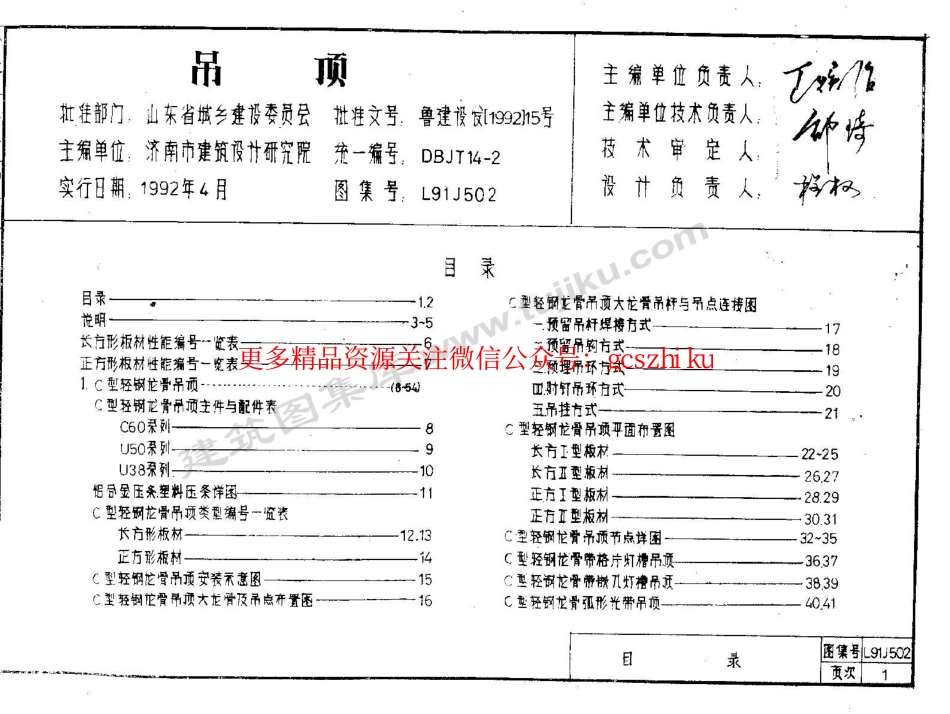 吊 顶
批准部门: 山东省城乡建设委员会 批准文号: 鲁建设发[1992]15号
主编单位: 济南市建筑设计研究院 统一编号: DBJT14-2
实行日期: 1992年4月 图集号: L91J502
主编单位负责人:
主编单位技术负责人:
技术审定人:
设计负责人:
目 录
目录 1.2
说明 3~5
长方形板材性能编号一览表 6
正方形板材性能编号一览表
1. C型轻钢龙骨吊顶 (8-54)
C型轻钢龙骨吊顶主件与配件表
C60系列 8
U50系列 9
U38系列 10
铝合金压条塑料压条详图 11
C型轻钢龙骨吊顶类型编号一览表
长方形板材 12.13
正方形板材 14
C型轻钢龙骨吊顶安装示意图 15
C型轻钢龙骨吊顶大龙骨及吊点布置图 16
C型轻钢龙骨吊顶大龙骨吊杆与吊点连接图
一.预留吊杆焊接方式 17
二.预留吊钩方式 18
三.预埋吊环方式 19
四.射钉吊环方式 20
五.吊挂方式 21
C型轻钢龙骨吊顶平面布置图
长方I型板材 22~25
长方II型板材 26,27
正方I型板材 28.29
正方II型板材 30.31
C型轻钢龙骨吊顶节点详图 32~35
C型轻钢龙骨带格片灯槽吊顶 36,37
C型轻钢龙骨带嵌孔灯槽吊顶 38,39
C型轻钢龙骨弧形光带吊顶 40,41
更多精品资源关注微信公众号: gcszhiku
建筑图集库 www.tujiku.com
目 录
图集号 L91J502
页次 1